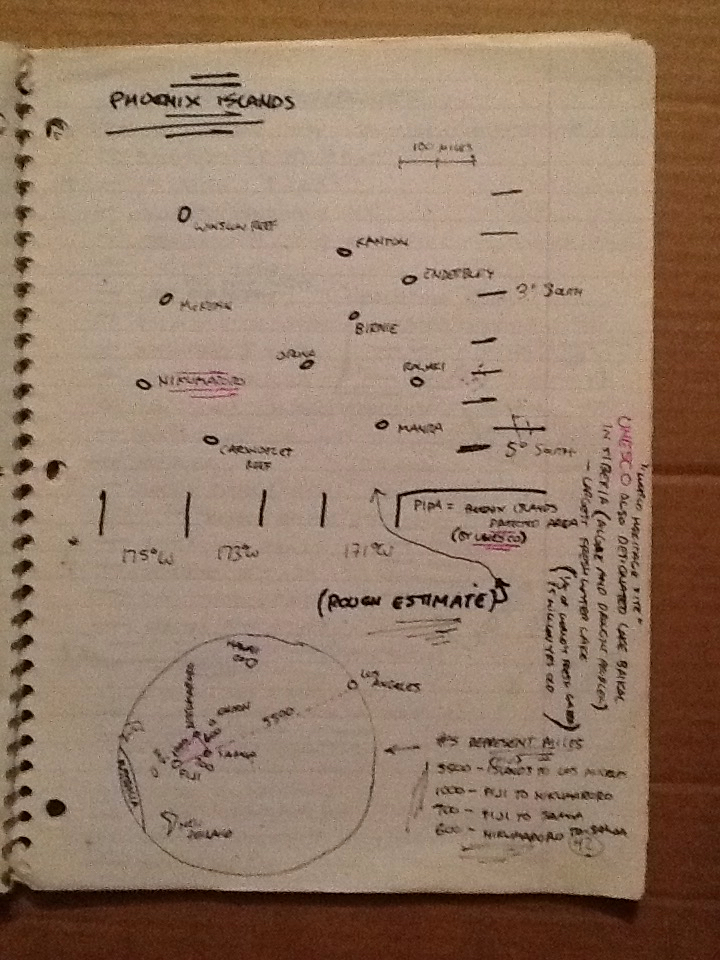 PHOENIX ISLANDS
100 MILES
WINSLOW REEF
KANTON
ENDERBURY
3° SOUTH
MCKEAN
BIRNIE
ORONA
RAWAKI
NIKUMARORO
MANRA
CARONDELET
REEF
5° SOUTH
175°W
173°W
171°W
PIPA = PHOENIX ISLANDS
PROTECTED AREA
(BY UNESCO)
(ROUGH ESTIMATE)
"WORLD HERITAGE SITE"
UNESCO ALSO DESIGNATED LAKE BAIKAL
IN SIBERIA (ALGAE AND DROUGHT PROBLEM)
- LARGEST FRESH WATER LAKE
(1/5 OF WORLD'S FRESH WATER)
25 MILLION YRS OLD
LOS
ANGELES
NIKUMARORO
5500
SAMOA
FIJI
AUSTRALIA
NEW
ZEALAND
#'S REPRESENT MILES
5500 - ISLANDS TO LOS ANGELES
1000 - FIJI TO NIKUMARORO
700 - FIJI TO SAMOA
600 - NIKUMARORO TO SAMOA
42